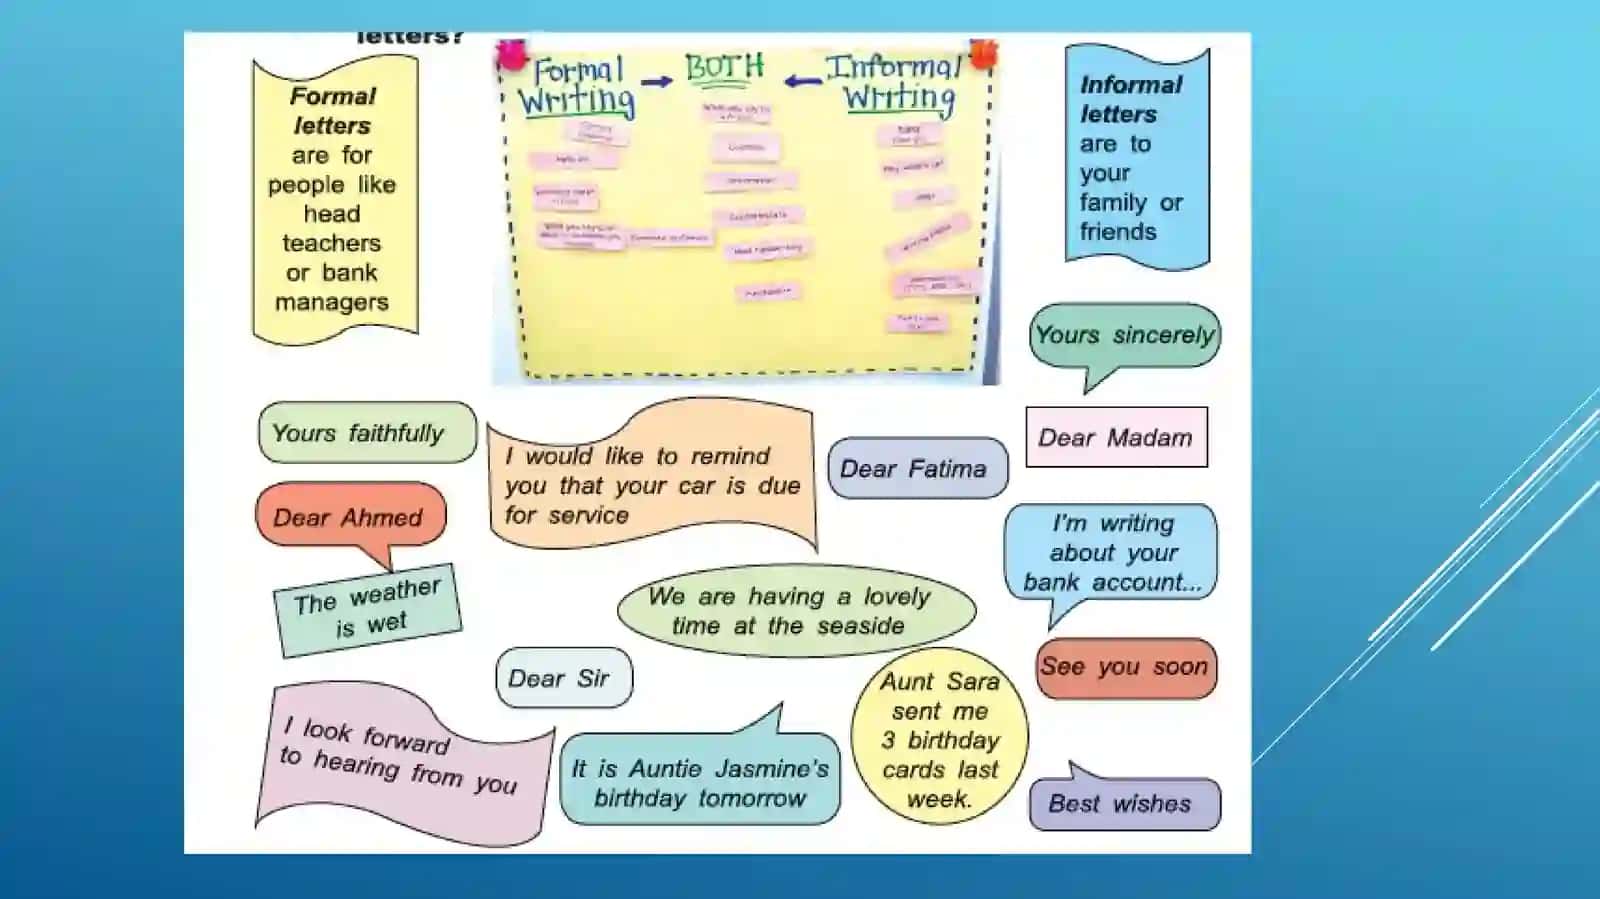 letters?
Formal
letters
are for
people like
head
teachers
or bank
managers
Formal
Writing
BOTH
Informal
Writing
Informal
letters
are to
your
family or
friends
Yours sincerely
Yours faithfully
I would like to remind
you that your car is due
for service
Dear Fatima
Dear Madam
Dear Ahmed
I'm writing
about your
bank account...
The weather
is wet
We are having a lovely
time at the seaside
Dear Sir
See you soon
Aunt Sara
sent me
3 birthday
cards last
week.
I look forward
to hearing from you
It is Auntie Jasmine's
birthday tomorrow
Best wishes